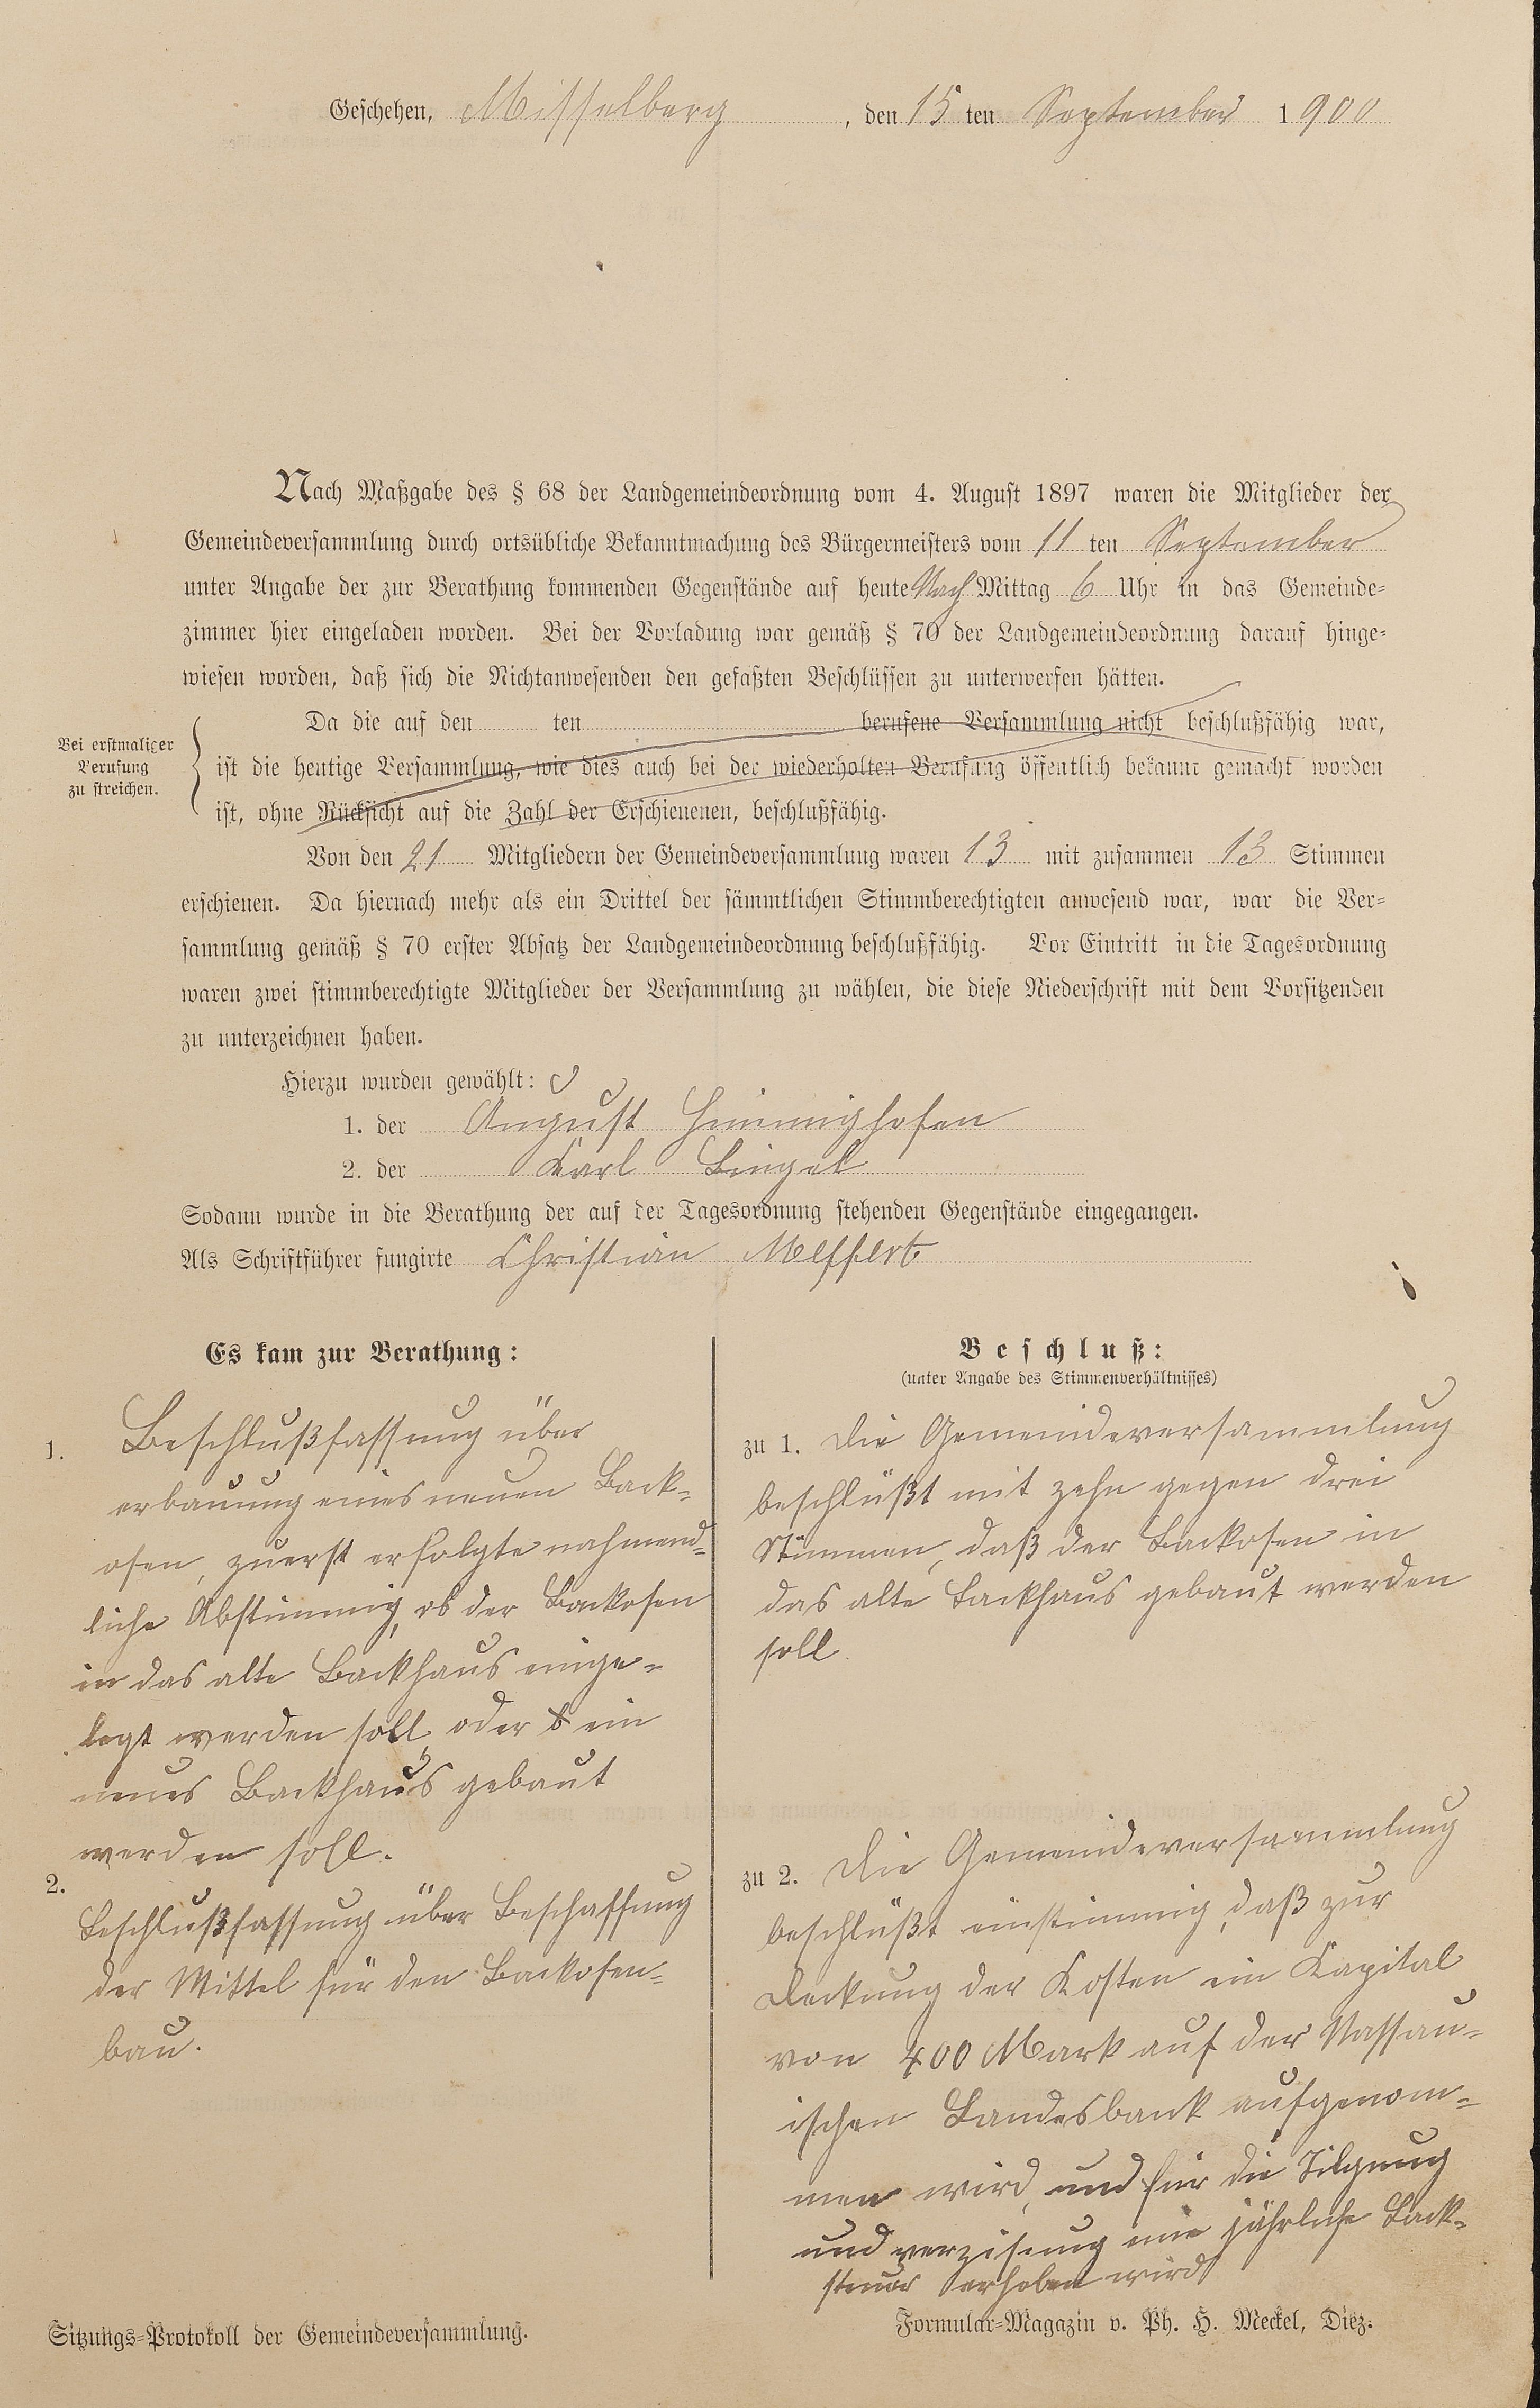 Geschehen, Misselberg, den 15 ten September 1900
Nach Maßgabe des § 68 der Landgemeindeordnung vom 4. August 1897 waren die Mitglieder der
Gemeindeversammlung durch ortsübliche Bekanntmachung des Bürgermeisters vom 11 ten September
unter Angabe der zur Berathung kommenden Gegenstände auf heute Nach Mittag 6 Uhr in das Gemeinde-
zimmer hier eingeladen worden. Bei der Vorladung war gemäß § 70 der Landgemeindeordnung darauf hinge-
wiesen worden, daß sich die Nichtanwesenden den gefaßten Beschlüssen zu unterwerfen hätten.
Bei erstmaliger
Berufung
zu streichen.
Da die auf den ten berufene Versammlung nicht beschlußfähig war,
ist die heutige Versammlung, wie dies auch bei der wiederholten Berufung öffentlich bekannt gemacht worden
ist, ohne Rücksicht auf die Zahl der Erschienenen, beschlußfähig.
Von den 21 Mitgliedern der Gemeindeversammlung waren 13 mit zusammen 13 Stimmen
erschienen. Da hiernach mehr als ein Drittel der sämmtlichen Stimmberechtigten anwesend war, war die Ver-
sammlung gemäß § 70 erster Absatz der Landgemeindeordnung beschlußfähig. Vor Eintritt in die Tagesordnung
waren zwei stimmberechtigte Mitglieder der Versammlung zu wählen, die diese Niederschrift mit dem Vorsitzenden
zu unterzeichnen haben.
Hierzu wurden gewählt:
1. der August Himmighofen
2. der Karl Bingel
Sodann wurde in die Berathung der auf der Tagesordnung stehenden Gegenstände eingegangen.
Als Schriftführer fungirte Christian Meffert
Es kam zur Berathung:
1. Beschlußfassung über
erbauung eines neuen Back-
ofen, zuerst erfolgte nahmend-
liche Abstimmig, ob der Backofen
in das alte Backhaus einge-
legt werden soll, oder ein
neues Backhaus gebaut
werden soll.
2.
Beschlußfassung über Beschaffung
der Mittel für den Backofen-
bau.
Beschluß:
(unter Angabe des Stimmenverhältnisses)
zu 1. Die Gemeindeversammlung
beschlüßt mit zehn gegen drei
Stimmen, daß der Backofen in
das alte Backhaus gebaut werden
soll.
zu 2. Die Gemeindeversammlung
beschlüßt einstimmig, daß zur
Deckung der Kosten ein Kapital
von 400 Mark auf der Nassau-
ischen Landesbank aufgenom-
men wird, und für die Tilgung
und verzisung eine jährliche Back-
steuer erhoben wird
Sitzungs-Protokoll der Gemeindeversammlung.
Formular-Magazin v. Ph. H. Meckel, Diez.